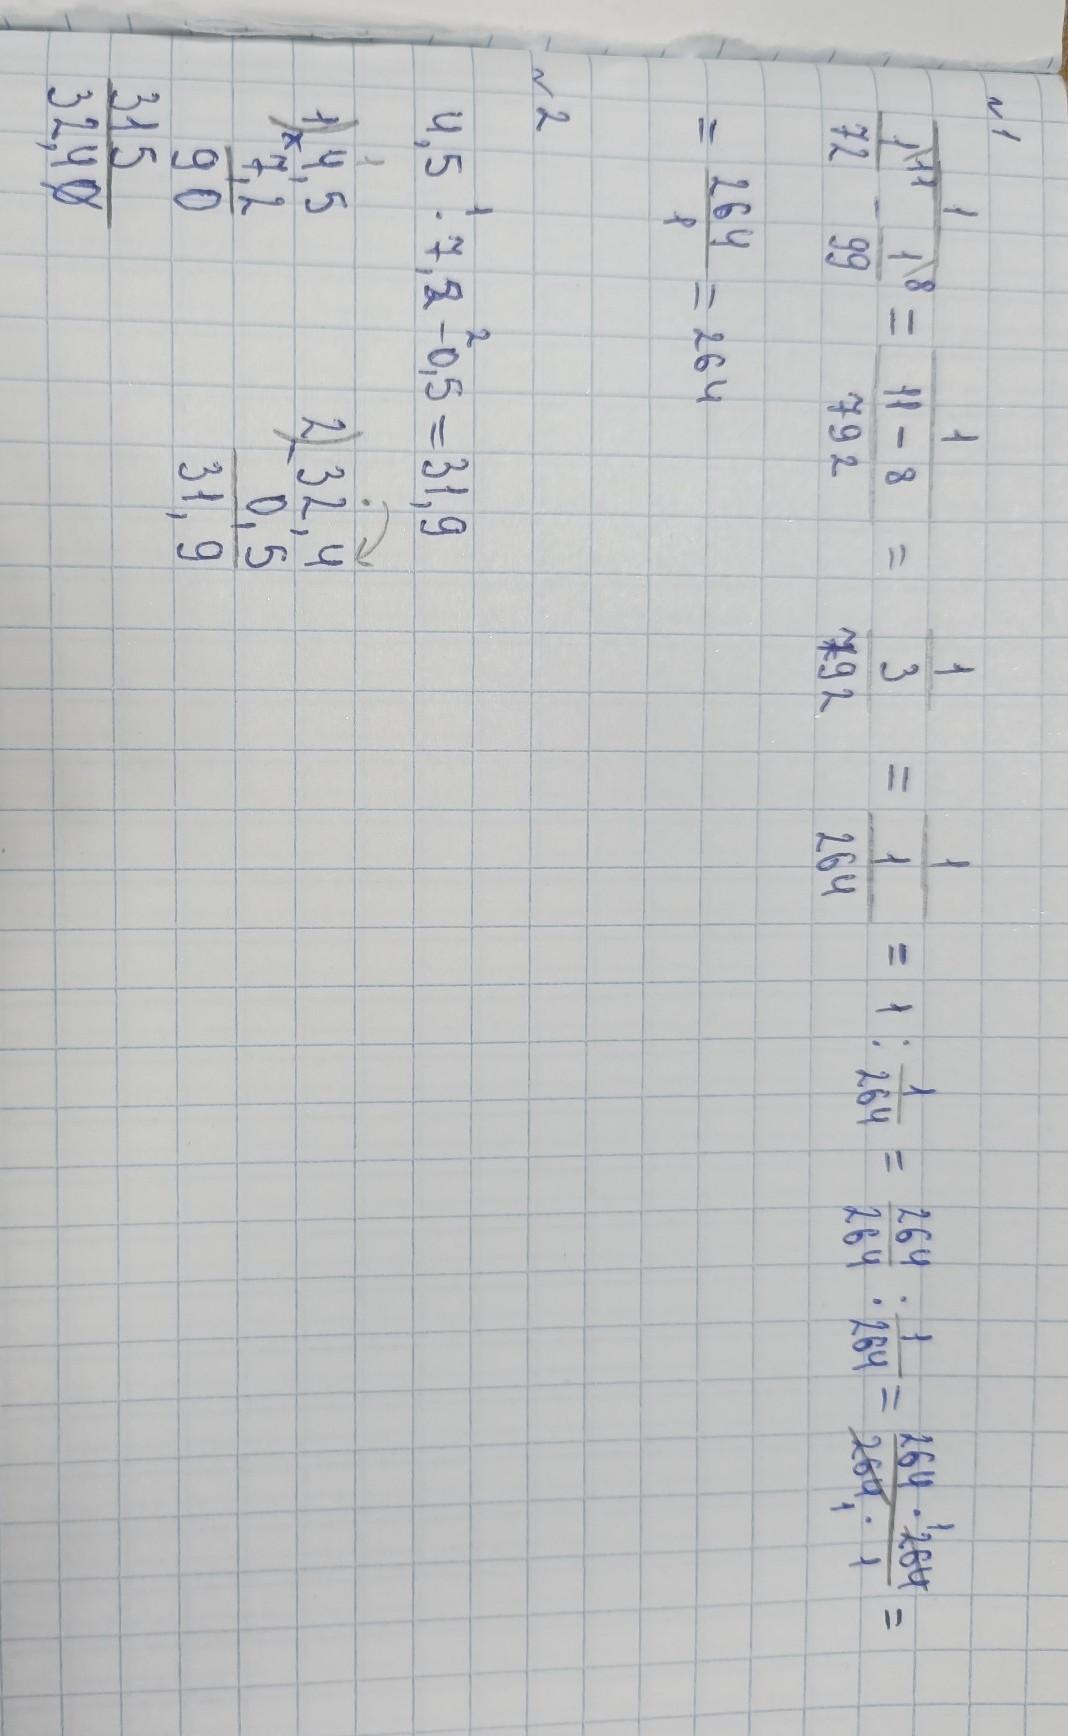 №1
1/(1\11/72 - 1\8/99) = 1/((11-8)/792) = 1/(3/792) = 1/(1/264) = 1 : 1/264 = 264/264 · 1/264 = (264 · 264)/(264 · 1) =
= 264/1 = 264
№2
4,5 · 7,2 - 0,5 = 31,9
1) 4,5 2) 32,4
× 7,2 - 0,5
90 31,9
315
32,40